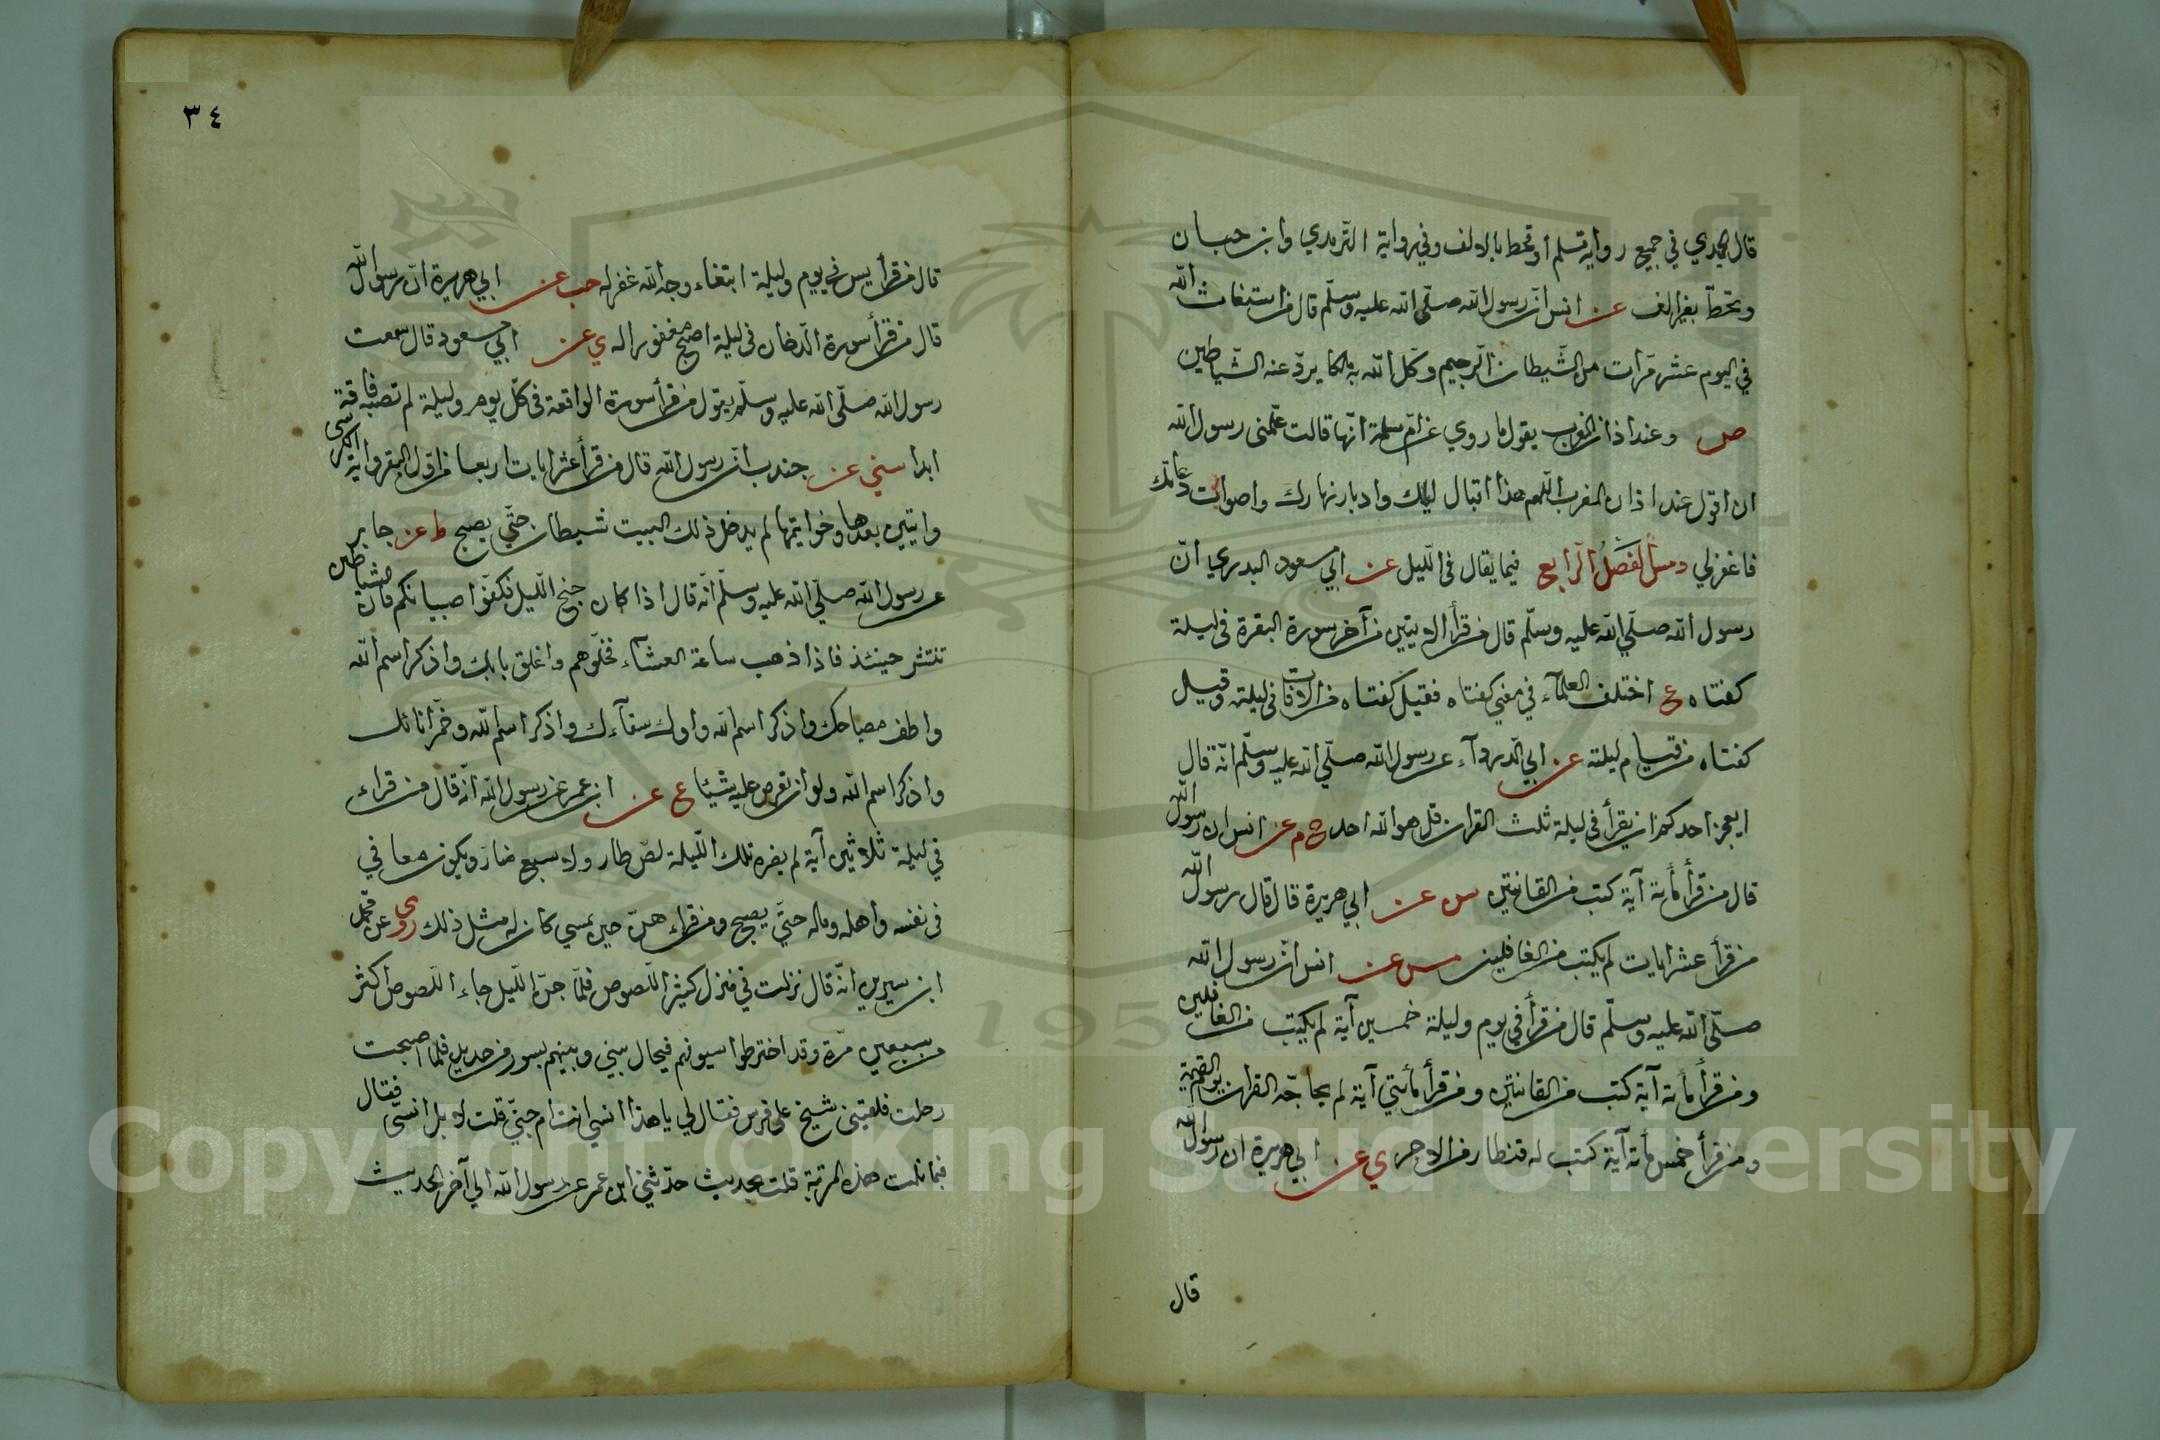 قال الحميدي في جميع رواية مسلم او تحط بالالف وفي رواية الترمدي وابن حبان
وتحطّ بغير الف عن انس انّ رسول الله صلّى الله عليه وسلّم قال من استغاث الله
في اليوم عشر مرّات من الشّيطان الرّجيم وكل الله به ملكا يردّ عنه الشّياطين
ص وعند اذان المغرب يقول ما روي عن امّ سلمة انّها قالت علّمني رسول الله
ان اقول عند اذان المغرب اللّهم هذا اقبال ليلك وادبار نهارك واصوات دعاتك
فاغفرلي دمس الفصل الرّابع فيما يقال في اللّيل عن ابي مسعود البدري انّ
رسول الله صلّى الله عليه وسلّم قال من قرأ الايتين من آخر سورة البقرة في ليلة
كفتاه ع اختلف العلمآء في معني كفتاه فقيل كفتاه من الافات في ليلته وقيل
كفتاه من قيام ليلته عن ابي الدردآء عن رسول الله صلّى الله عليه وسلّم انّه قال
ايعجز احدكم ان يقرأ في ليلة ثلث القران قل هو الله احد خ م عن انس ان رسول الله
قال من قرأ مأئة آية كتب من القانتين س عن ابي هريرة قال قال رسول الله
من قرأ عشر ايات لم يكتب من الغافلين مس عن انس انّ رسول الله
صلّى الله عليه وسلّم قال من قرأ في يوم وليلة خمسين آية لم يكتب من الغافلين
ومن قرأ مأئة آية كتب من القانتين ومن قرأ مأئتي آية لم يحاجّه القران يوم القيمة
ومن قرأ خمس مأئة آية كتب له قنطار من الاجر ي عن ابي هريرة ان رسول الله
قال
٣٤
قال من قرأ يس في يوم وليلة ابتغاء وجه الله غفر له حب عن ابي هريرة انّ رسول الله
قال من قرأ سورة الدخان في ليلة اصبح مغفورا له ي عن ابي مسعود قال سمعت
رسول الله صلّى الله عليه وسلّم يقول من قرأ سورة الواقعة في كلّ يوم وليلة لم تصبه فاقة
ابدا سني عن جندب انّ رسول الله قال من قرأ عشر ايات اربعا من اول البقرة واية الكرسي
وايتين بعدها وخواتيمها لم يدخل ذلك البيت شيطان حتّي يصبح ط عن جابر
عن رسول الله صلّى الله عليه وسلّم انّه قال اذا كان جنح اللّيل فكفّوا صبيانكم فان الشياطين
تنتشر حينئذ فاذا ذهب ساعة العشآء فخلّوهم واغلق بابك واذكر اسم الله
واطف مصباحك واذكر اسم الله واوك سقآءك واذكر اسم الله وخمّر انائك
واذكر اسم الله ولو ان تعرض عليه شيئا ع عن ابن عمر عن رسول الله انّه قال من قراء
في ليلة ثلاثين آية لم يضره تلك اللّيلة لصّ طار ولا سبع ضار ويكون معافي
في نفسه واهله وماله حتّي يصبح ومن قراء هنّ حين يمسي كان له مثل ذلك روي عن محمّد
ابن سيرين انّه قال نزلت في منزل كثير اللّصوص فلمّا جنّ اللّيل جاء اللّصوص اكثر
من سبعين مرّة وقد اخترطوا سيوفهم فيحال بيني وبينهم بسور من حديد فلمّا اصبحت
رحلت فلقيني شيخ على فرس فقال لي يا هذا انسي انت ام جنّي قلت لا بل انسيّ فقال
فبما نلت هذه المرتبة قلت بحديث حدّثني ابن عمر عن رسول الله الي آخر الحديث
Copyright © King Saud University